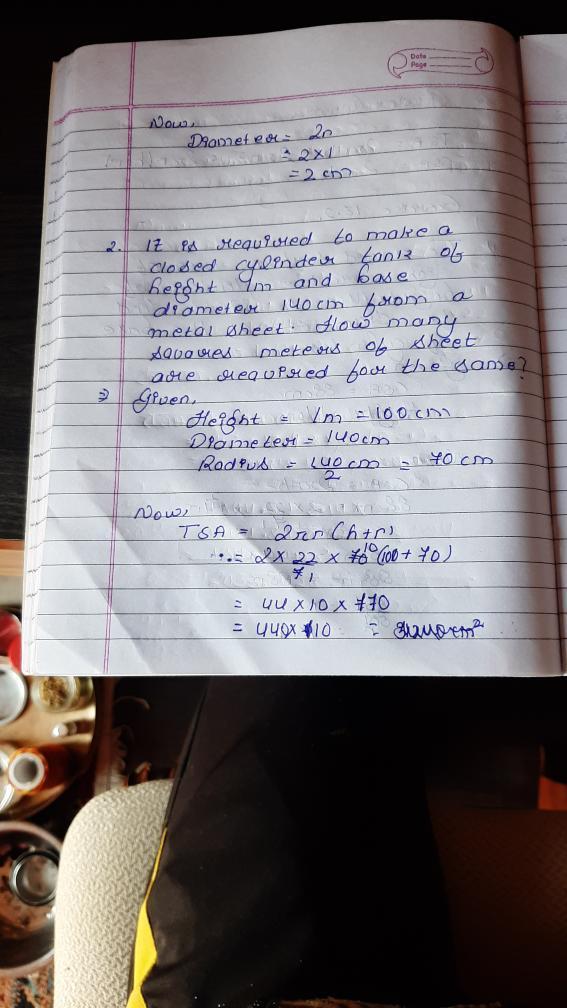 Date
Page
Now,
Diameter = 2r
= 2×1
= 2 cm
2. It is required to make a
closed cylinder tank of
height 1m and base
diameter 140 cm from a
metal sheet. How many
squares meters of sheet
are required for the same?
⇒ Given,
Height = 1m = 100 cm
Diameter = 140 cm
Radius = 140/2 cm = 70 cm
Now,
TSA = 2πr (h+r)
= 2 × 22/7 × 70 (100 + 70)
= 44 × 10 × 170
= 440 ×